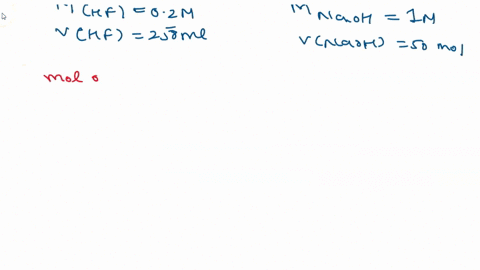 M(HF) = 0.2M
V(HF) = 250ml
M NaOH = 1M
V(NaOH) = 50 mol
mol o